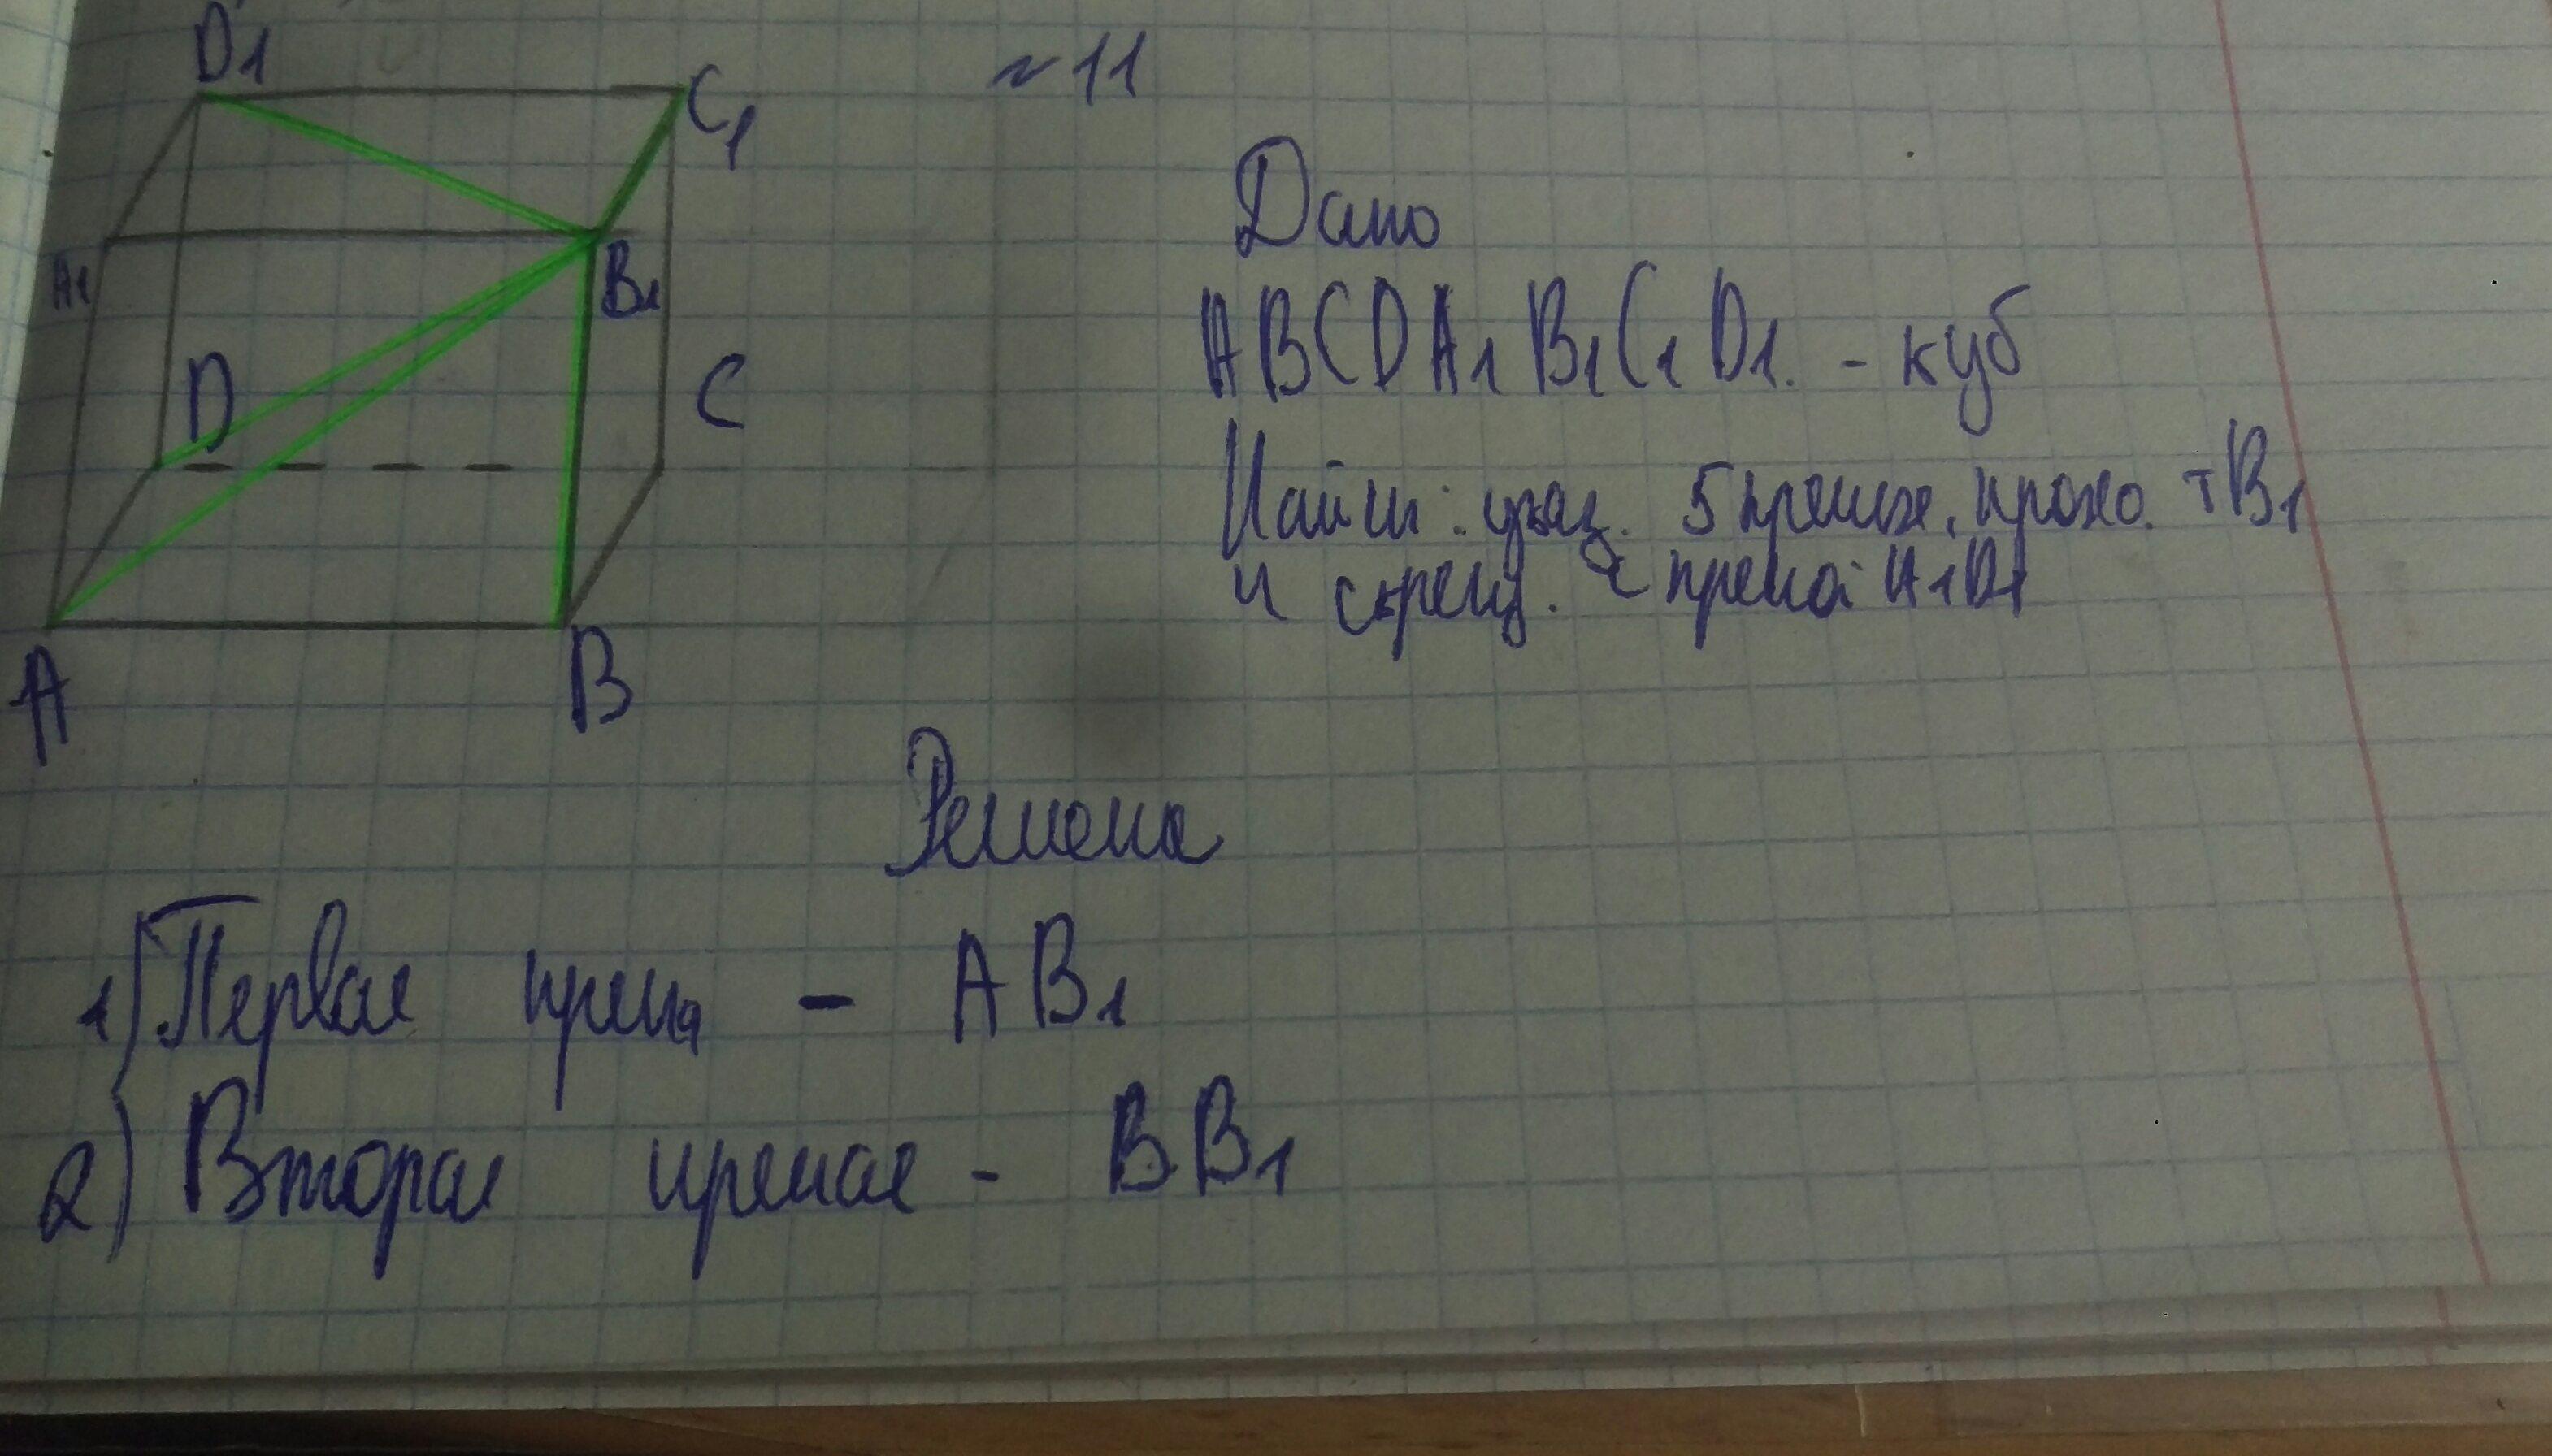 D1
C1
№11
A1
B1
D
C
A
B
Дано
ABCDA1B1C1D1. - куб
Найти: указ. 5 прямых, прохо. т B1
и скрещ. с прямой A1D1
Решение
1) Первая прямая - AB1
2) Вторая прямая - BB1